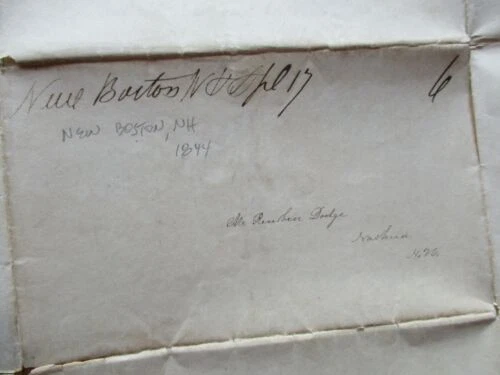 New Boston NH Apl 17 6
NEW BOSTON, NH
1844
Mr Reuben Dodge
Nashua
N.H.